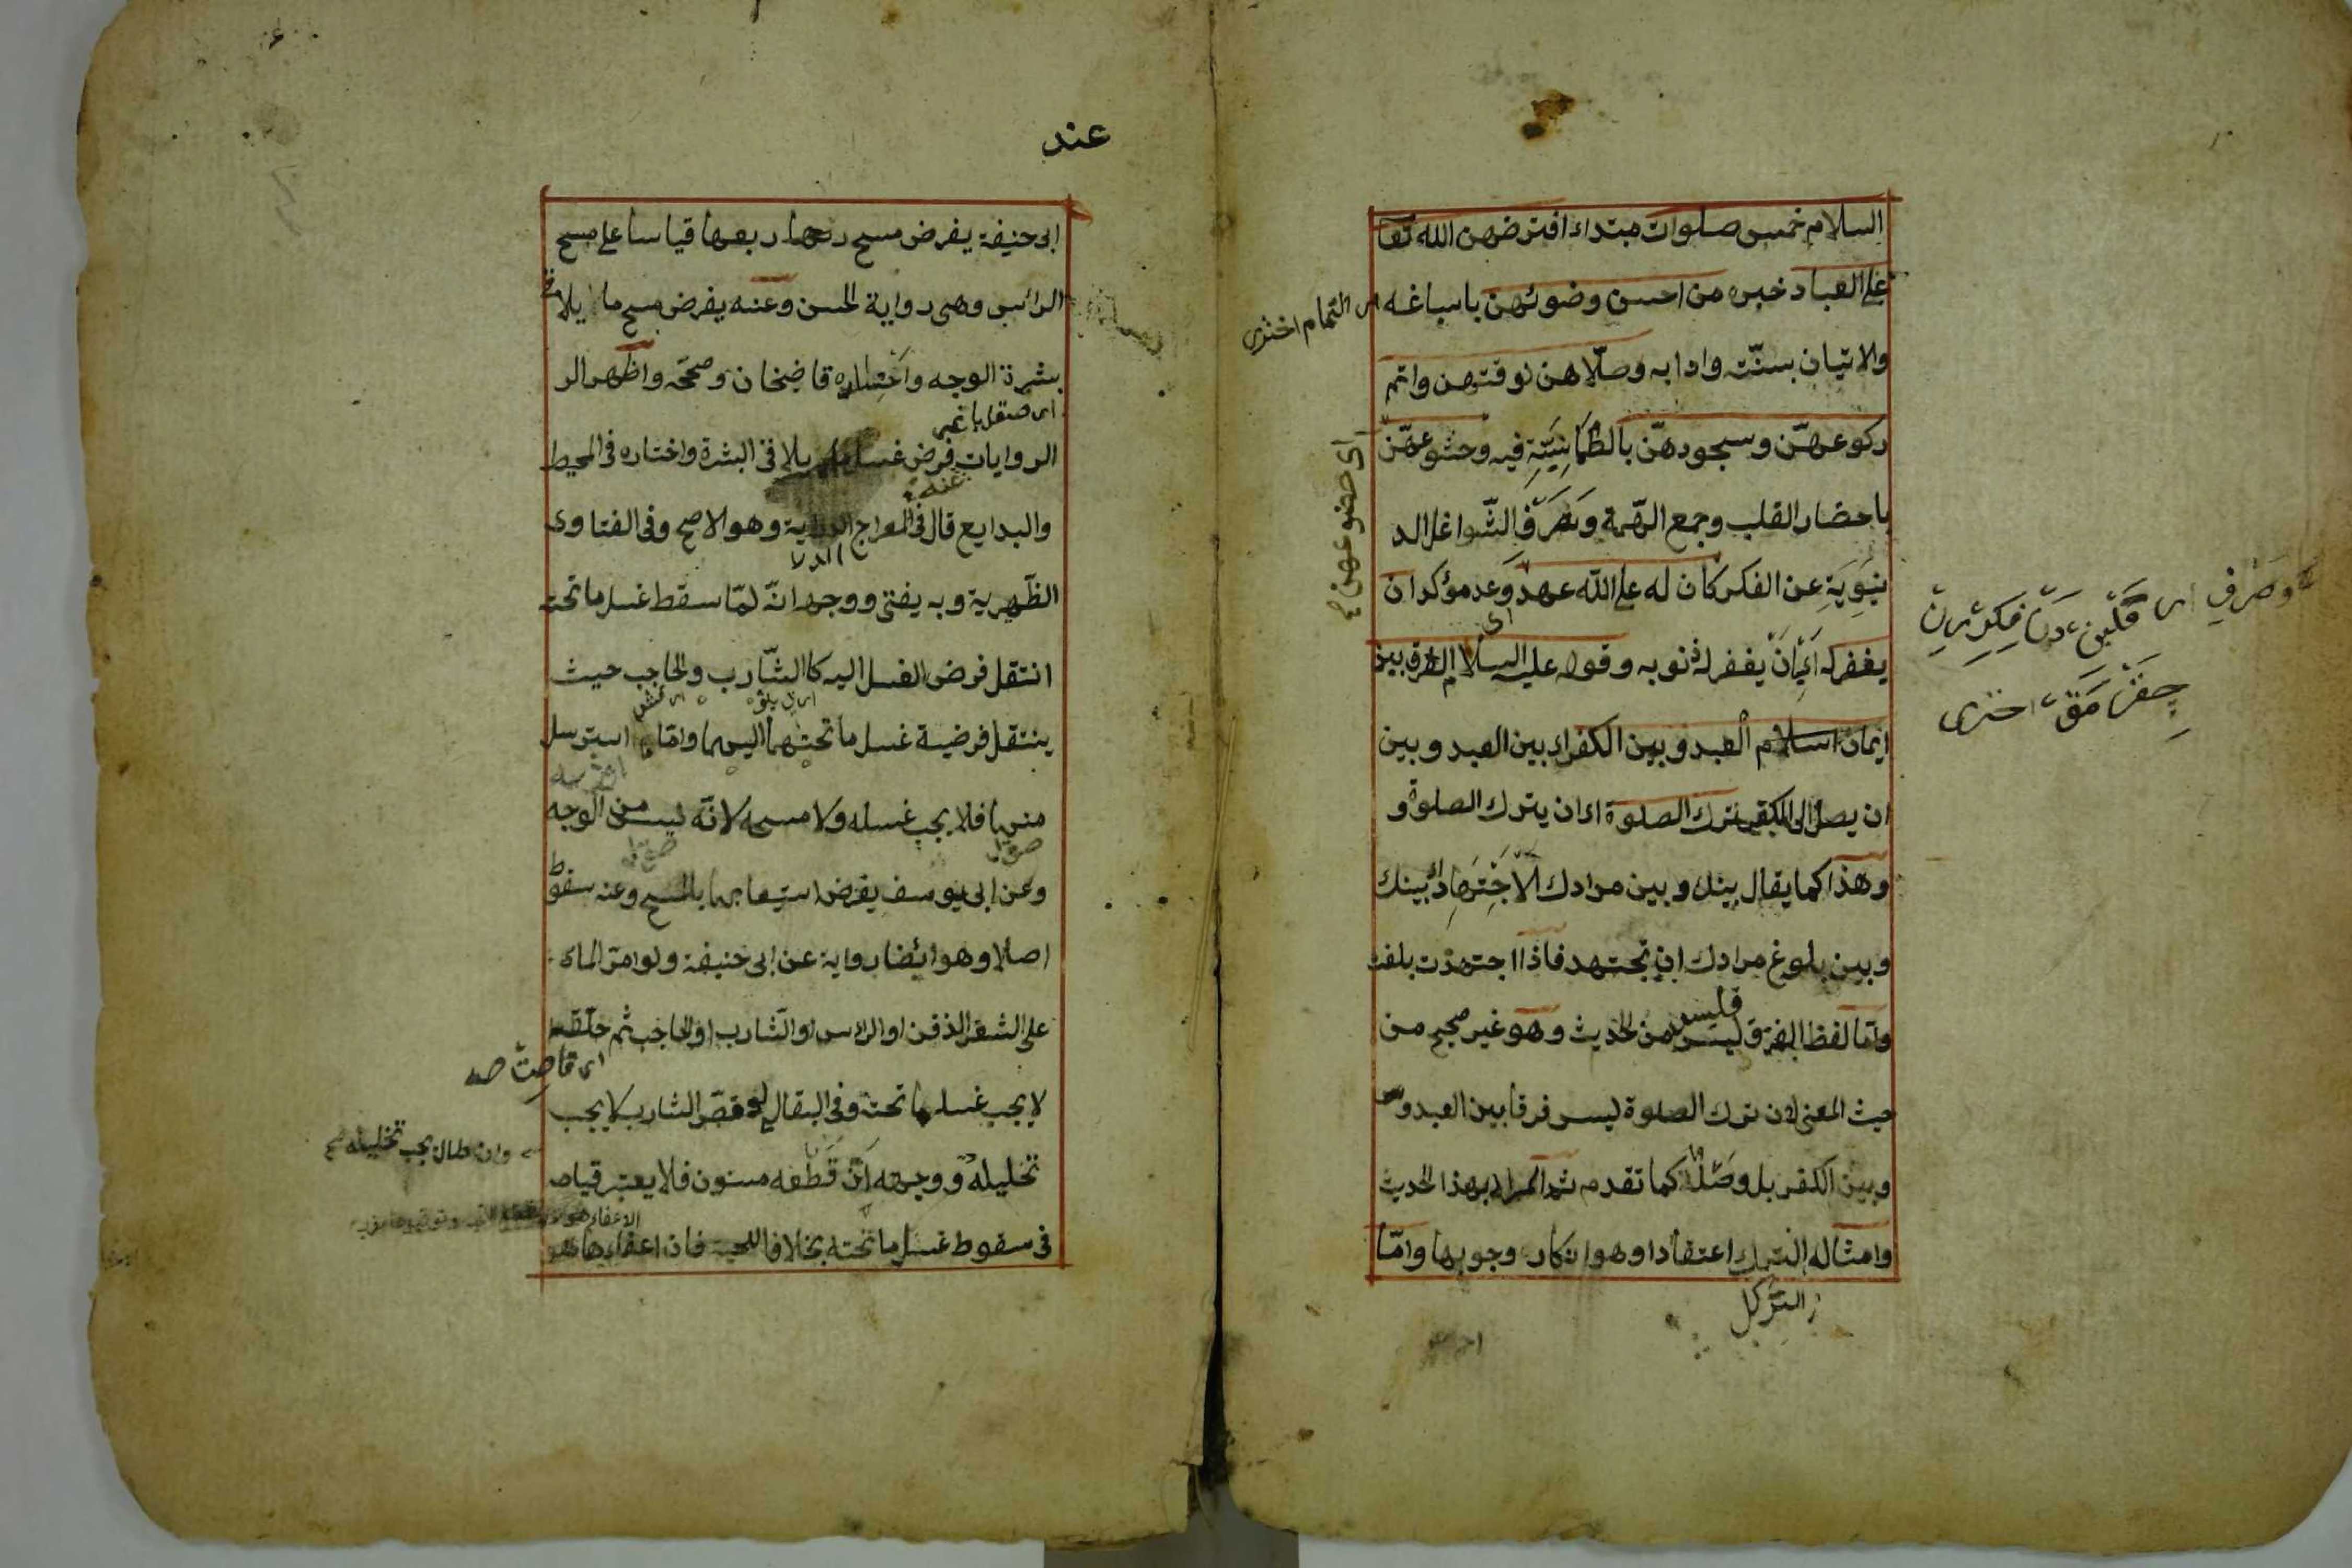 السلام خمس صلوات مبتداء افترضهن الله تعا
على العباد خبره من احسن وضوئهن باسباغه
اى التمام اخترى
والاتيان بسنّته وادابه وصلّاهن لوقتهن واتم
ركوعهنّ وسجودهنّ بالطّمانِيَّنِيَّةِ فيه وخشوعهنّ
اى خضوعهن
باحضار القلب وجمع الهّمة وَصَرْفِ الشّواغل الد
ينوية عن الفكر كان له على الله عهد وعد مؤكد ان
يغفر له اى بان يغفر له ذنوبه وقوله عليه السلام الفرق بين
ايمان اسلام العبد وبين الكفر اى بين العبد وبين
ان يصل الى الكفر ترك الصلوة اى ان يترك الصلوة و
وهذا كما يقال بينك وبين مرادك الاجتهاد اى بينك
وبين بلوغ مرادك ان تجتهد فاذا اجتهدت بلغت
وامّا لفظ الفرق فليس من الحديث وهو غير صحيح من
حيث المعنى لان ترك الصلوة ليس فرقا بين العبد و
وبين الكفر بل وصلا كما تقدم ثم المراد بهذا الحديث
وامثاله الترك اعتقادا وهو انكار وجوبها وامّا
وصرفِ اى
اخترى
عند
ابى حنيفة يفرض مسح ربعها قياسا على مسح
الرائس وهى رواية الحسن وعنه يفرض مسح ما يلا
بشرة الوجه واختاره قاضيخان وصحّحه واظهر الر
الروايات فرض غسل ما يلاقى البشرة واختاره فى المحيط
والبدايع قال فى المعراج الدراية وهو الاصح وفى الفتاوى
الظّهيرية وبه يفتى ووجهه انّه لمّا سقط غسل ما تحته
انتقل فرض الغسل اليه كالشّارب والحاجب حيث
ينتقل فرضية غسل ما تحتهما اليهما وامّا ما استرسل
منها فلا يجب غسله ولا مسحه لانّه ليس من الوجه
وعن ابى يوسف يفرض استيعابها بالمسح وعنه سقوط
اصلا وهو ايضا رواية عن ابى حنيفة ولو امرّ الماء
على الشعر الذقن او الراس او الشّارب او الحاجب ثم حلقه
لا يجب غسل ما تحته وفى البقالى لو قصّ الشارب لا يجب
وان طال يجب تخليله
تخليله ووجهه انّ قطعه مسنون فلا يعتبر قيامه
فى سقوط غسل ما تحته بخلاف اللحية فان اعفاءها هو